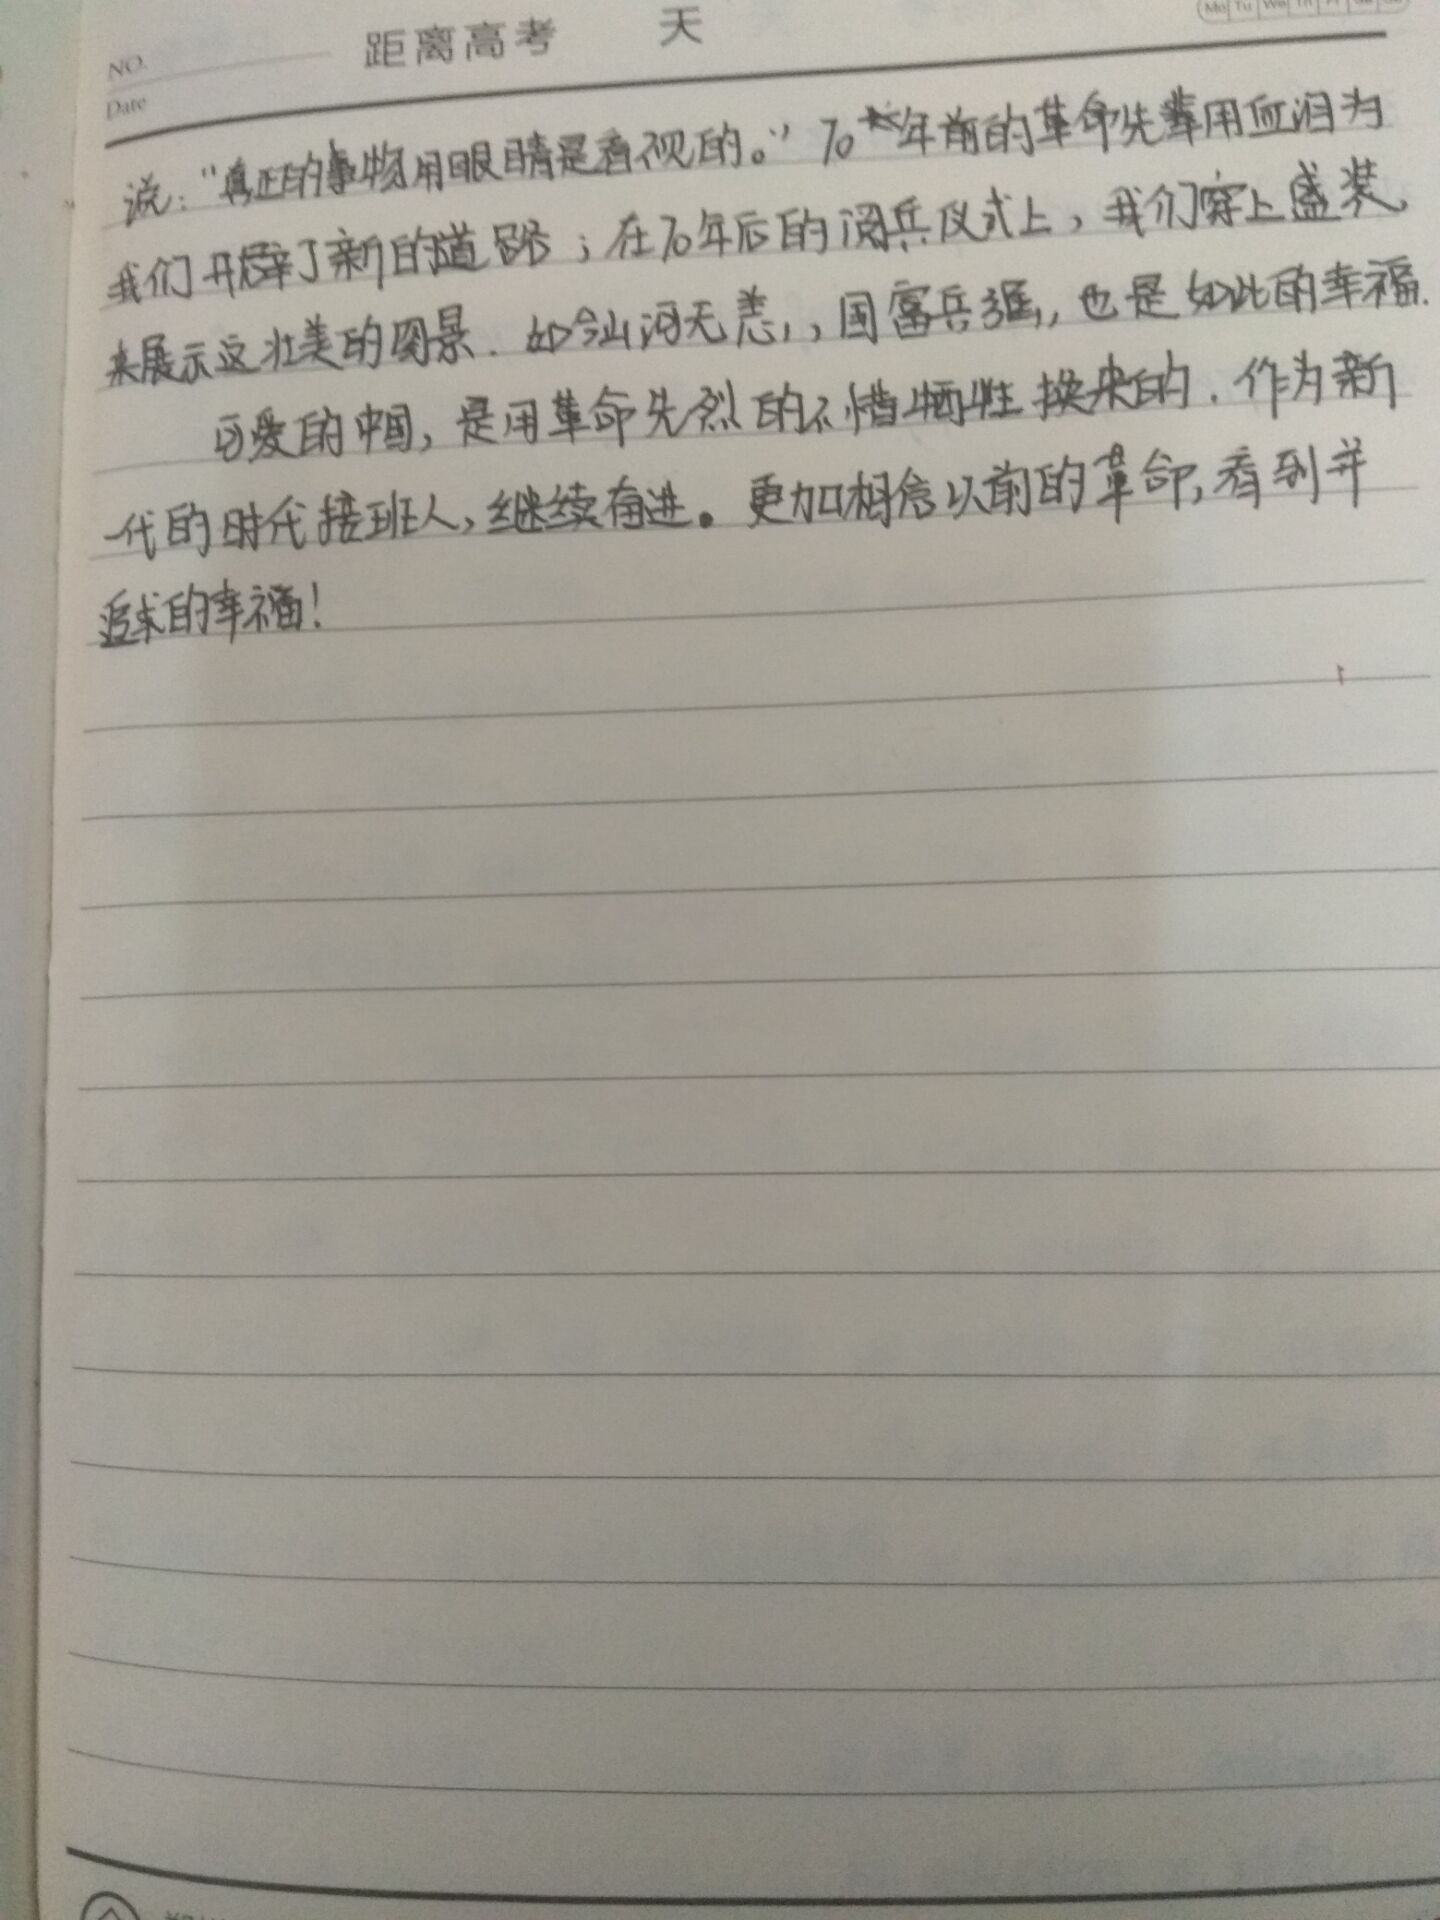 距离高考 天
NO.
Date
说："真正的事物用眼睛是看不见的。"70年前的革命先辈用血泪为
我们开辟了新的道路；在70年后的阅兵仪式上，我们穿上盛装，
来展示这壮美的图景．如今山河无恙，国富兵强，也是如此的幸福．
可爱的中国，是用革命先烈的不惜牺牲换来的．作为新
一代的时代接班人，继续奋进。更加相信以前的革命，看到并
追求的幸福！